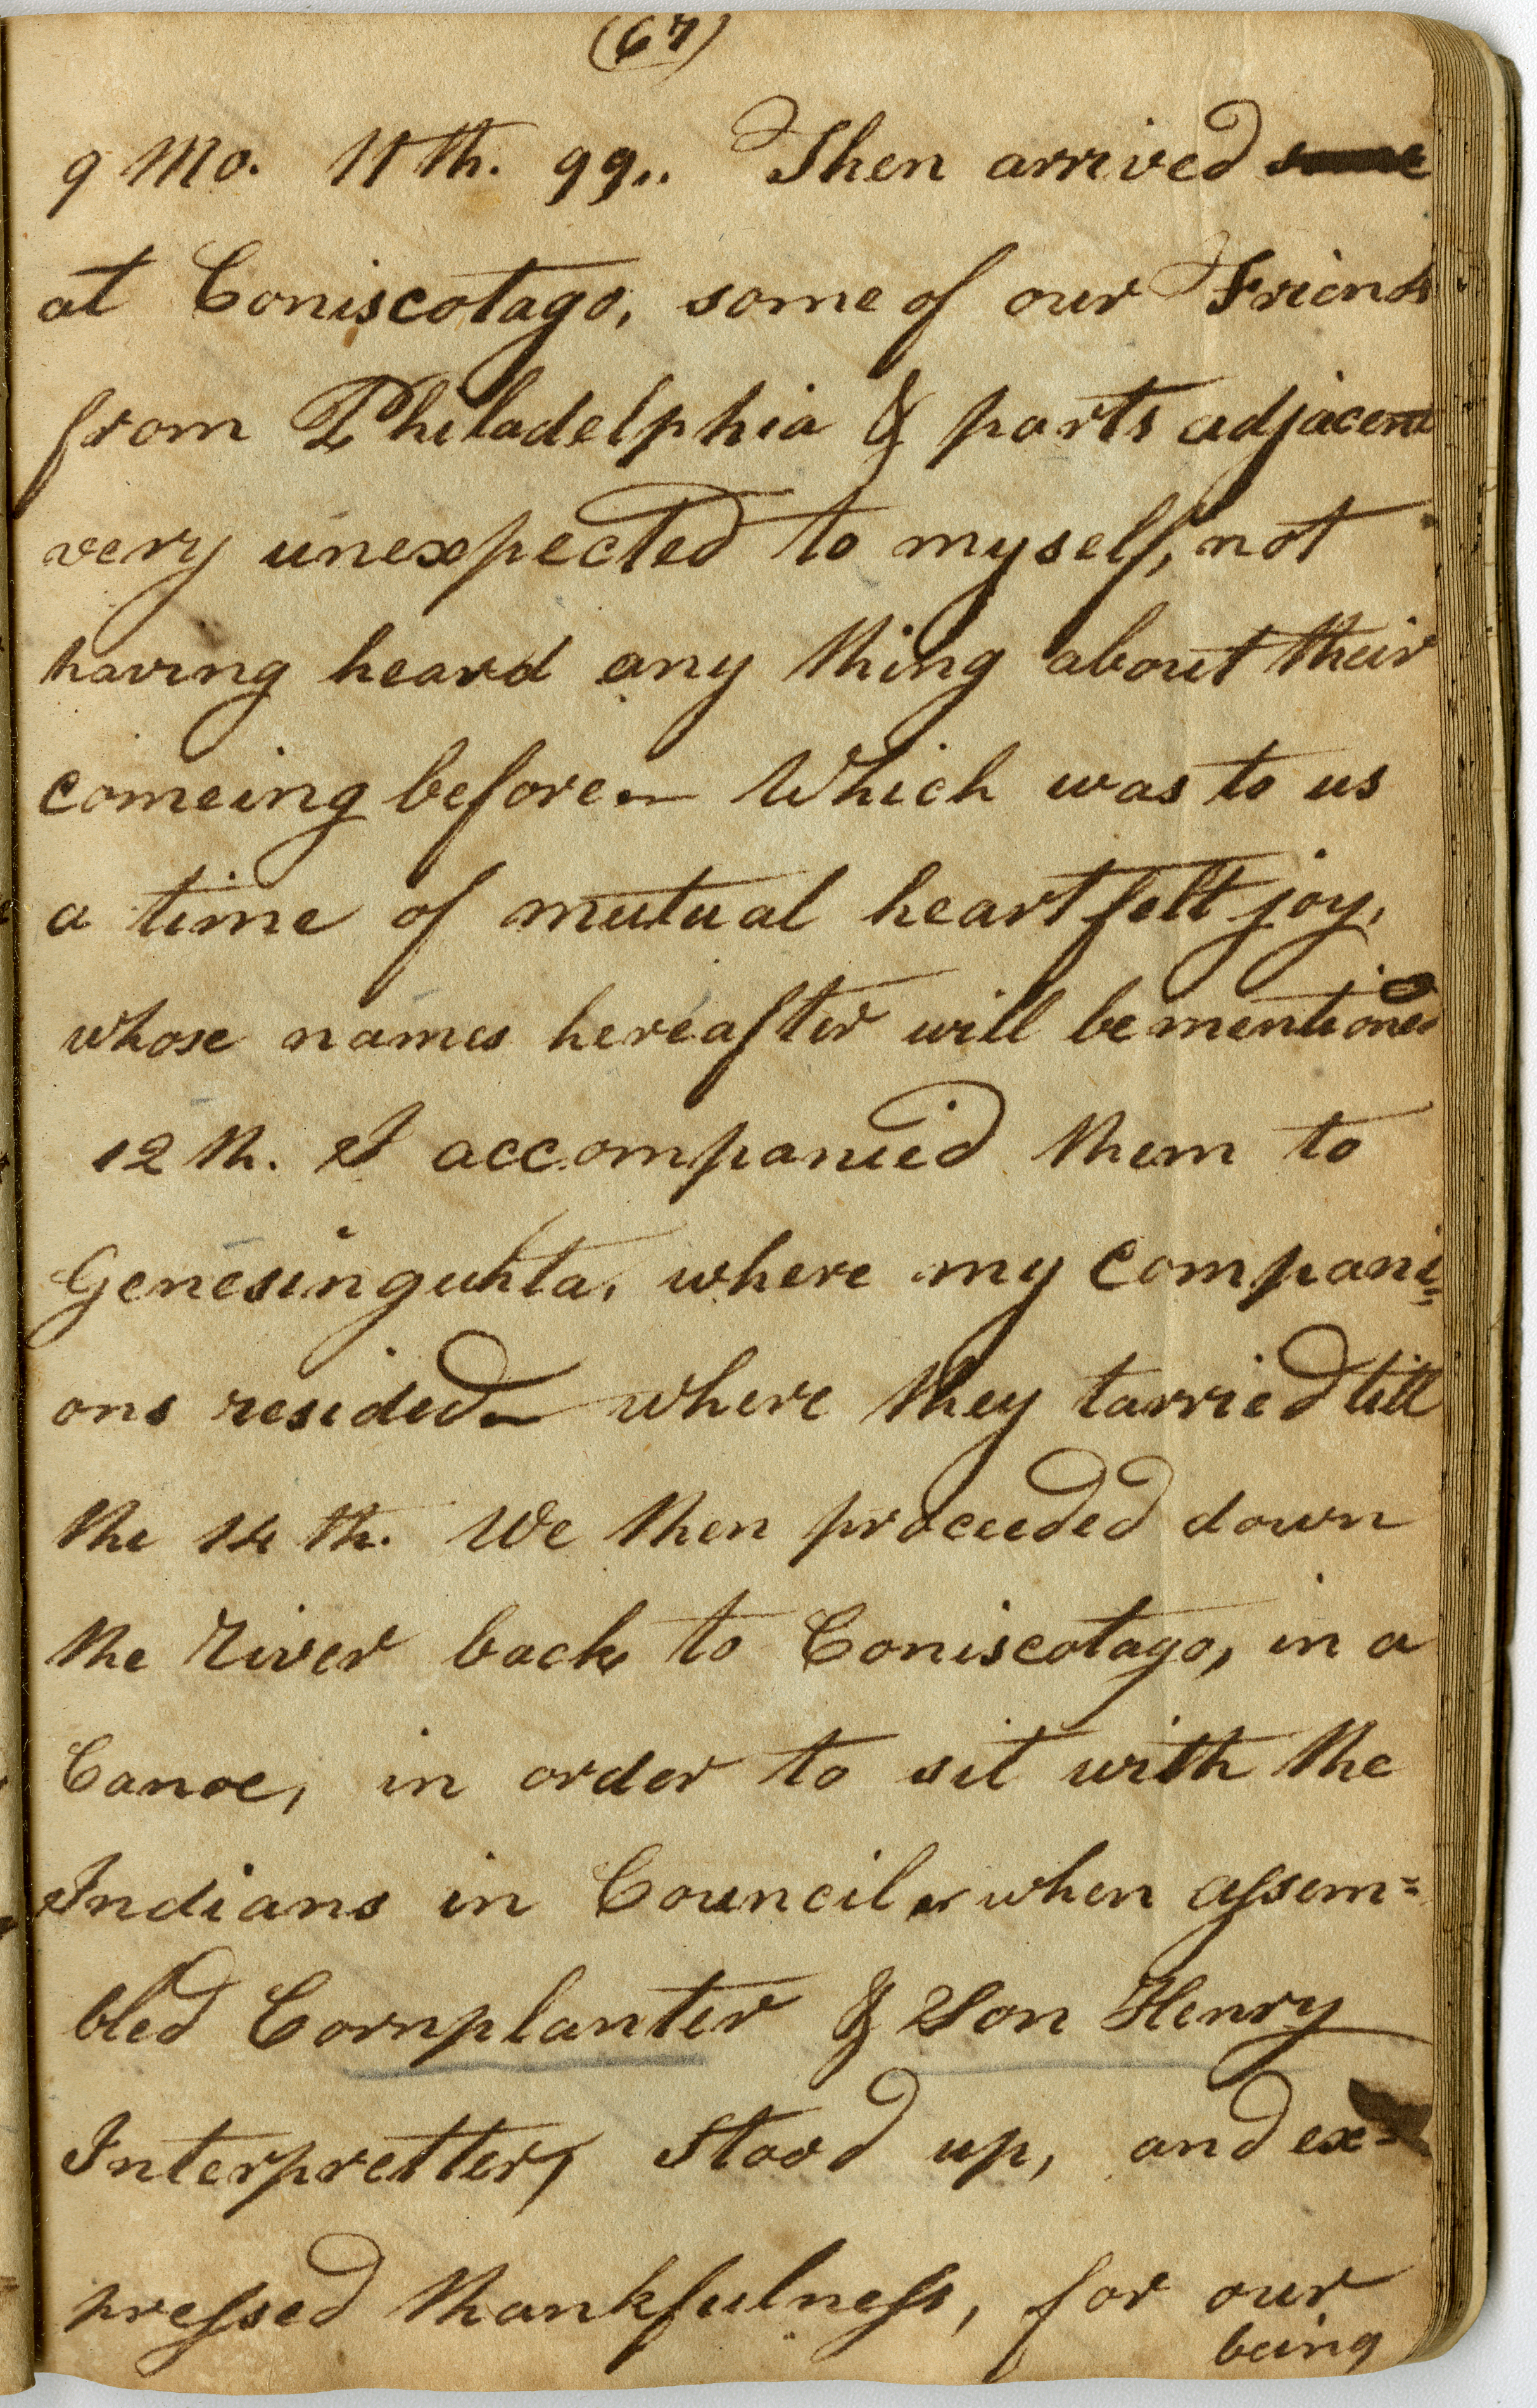 (67)
9 Mo. 11th. 99.. Then arrived some
at Coniscotago, some of our Friends
from Philadelphia & parts adjacent
very unexpected to myself, not
having heard any thing about their
comeing before – Which was to us
a time of mutual heart felt joy,
whose names hereafter will be mentioned
12th. I accompanied them to
Genesinguhta, where my compani=
ons resided – where they tarried till
the 14th. We then proceeded down
the River back to Coniscotago, in a
Canoe, in order to sit with the
Indians in Council, when assem=
bled Cornplanter & Son Henry
Interpretter, Stood up, and ex=
pressed thankfulness, for our
being